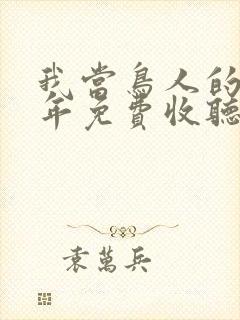 我當鳥人的
年免費收聽
袁萬兵